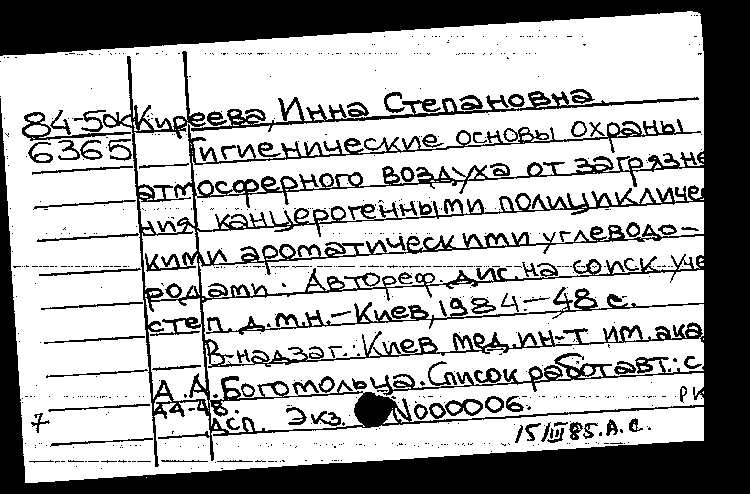 84-5ок Киреева, Инна Степановна.
6365 Гигиенические основы охраны
атмосферного воздуха от загрязне
ния канцерогенными полицикличе
кими ароматическими углеводо-
родами: Автореф. дис. на соиск. уче
степ. д.м.н. - Киев, 1984. - 48 с.
В надзаг.: Киев. мед. ин-т им. ака
А.А. Богомольца. Список работ авт.: с.
44-48.
ДСП. Экз. N000006.
РК
7
15/III 85. А.С.